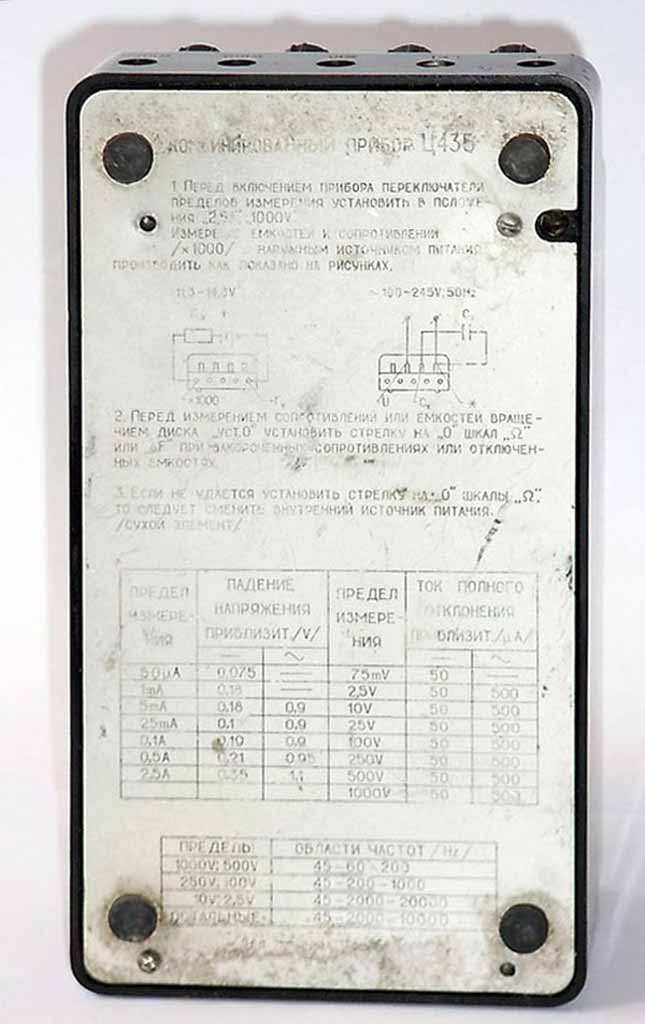 КОМБИНИРОВАННЫЙ ПРИБОР Ц435
1. ПЕРЕД ВКЛЮЧЕНИЕМ ПРИБОРА ПЕРЕКЛЮЧАТЕЛИ
ПРЕДЕЛОВ ИЗМЕРЕНИЯ УСТАНОВИТЬ В ПОЛОЖЕ-
НИЯ „2,5A", „1000V"
ИЗМЕРЕНИЕ ЕМКОСТЕЙ И СОПРОТИВЛЕНИЙ
/×1000/ НАРУЖНЫМ ИСТОЧНИКОМ ПИТАНИЯ
ПРОИЗВОДИТЬ КАК ПОКАЗАНО НА РИСУНКАХ.
~100-245V; 50Hz
×1000
2. ПЕРЕД ИЗМЕРЕНИЕМ СОПРОТИВЛЕНИЙ ИЛИ ЕМКОСТЕЙ ВРАЩЕ-
НИЕМ ДИСКА „УСТ.0" УСТАНОВИТЬ СТРЕЛКУ НА „0" ШКАЛ „Ω"
ИЛИ F" ПРИ ЗАКОРОЧЕННЫХ СОПРОТИВЛЕНИЯХ ИЛИ ОТКЛЮЧЕН-
НЫХ ЕМКОСТЯХ.
3. ЕСЛИ НЕ УДАЕТСЯ УСТАНОВИТЬ СТРЕЛКУ НА „0" ШКАЛЫ „Ω",
ТО СЛЕДУЕТ СМЕНИТЬ ВНУТРЕННИЙ ИСТОЧНИК ПИТАНИЯ.
/СУХОЙ ЭЛЕМЕНТ/
ПРЕДЕЛ ИЗМЕРЕ- НИЯ
ПАДЕНИЕ НАПРЯЖЕНИЯ ПРИБЛИЗИТ./V/
ПРЕДЕЛ ИЗМЕРЕ- НИЯ
ТОК ПОЛНОГО ОТКЛОНЕНИЯ ПРИБЛИЗИТ./μA/
— ~ — ~
50μA 0,075 — 75mV 50 —
1mA 0,18 — 2,5V 50 500
5mA 0,18 0,9 10V 50 500
25mA 0,1 0,9 25V 50 500
0,1A 0,19 0,9 100V 50 500
0,5A 0,21 0,95 250V 50 500
2,5A 0,35 1,1 500V 50 500
1000V 50 500
ПРЕДЕЛЫ ОБЛАСТИ ЧАСТОТ /Hz/
1000V; 500V 45-60-200
250V; 100V 45-200-1000
10V; 2,5V 45-2000-20000
ОСТАЛЬНЫЕ 45-2000-10000